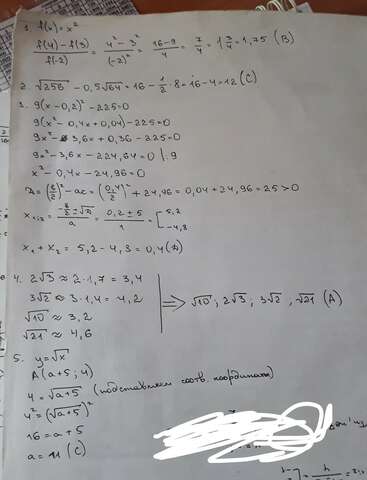 1. f(x) = x²
(f(4) - f(3))/f(-2) = (4² - 3²)/(-2)² = (16-9)/4 = 7/4 = 1 3/4 = 1,75 (B)
2. √256 - 0,5√64 = 16 - 1/2 · 8 = 16 - 4 = 12 (C)
3. 9(x - 0,2)² - 225 = 0
9(x² - 0,4x + 0,04) - 225 = 0
9x² - 3,6x + 0,36 - 225 = 0
9x² - 3,6x - 224,64 = 0 | :9
x² - 0,4x - 24,96 = 0
D = (b/2)² - ac = (0,4/2)² + 24,96 = 0,04 + 24,96 = 25 > 0
x₁,₂ = (-b/2 ± √D)/a = (0,2 ± 5)/1 = [ 5,2
-4,8
x₁ + x₂ = 5,2 - 4,8 = 0,4 (D)
4. 2√3 ≈ 2 · 1,7 = 3,4
3√2 ≈ 3 · 1,4 = 4,2
√10 ≈ 3,2
√21 ≈ 4,6
⇒ √10 ; 2√3 ; 3√2 ; √21 (A)
5. y = √x
A(a+5 ; 4)
4 = √a+5 (подставляем соотв. координаты)
4² = (√a+5)²
16 = a + 5
a = 11 (C)